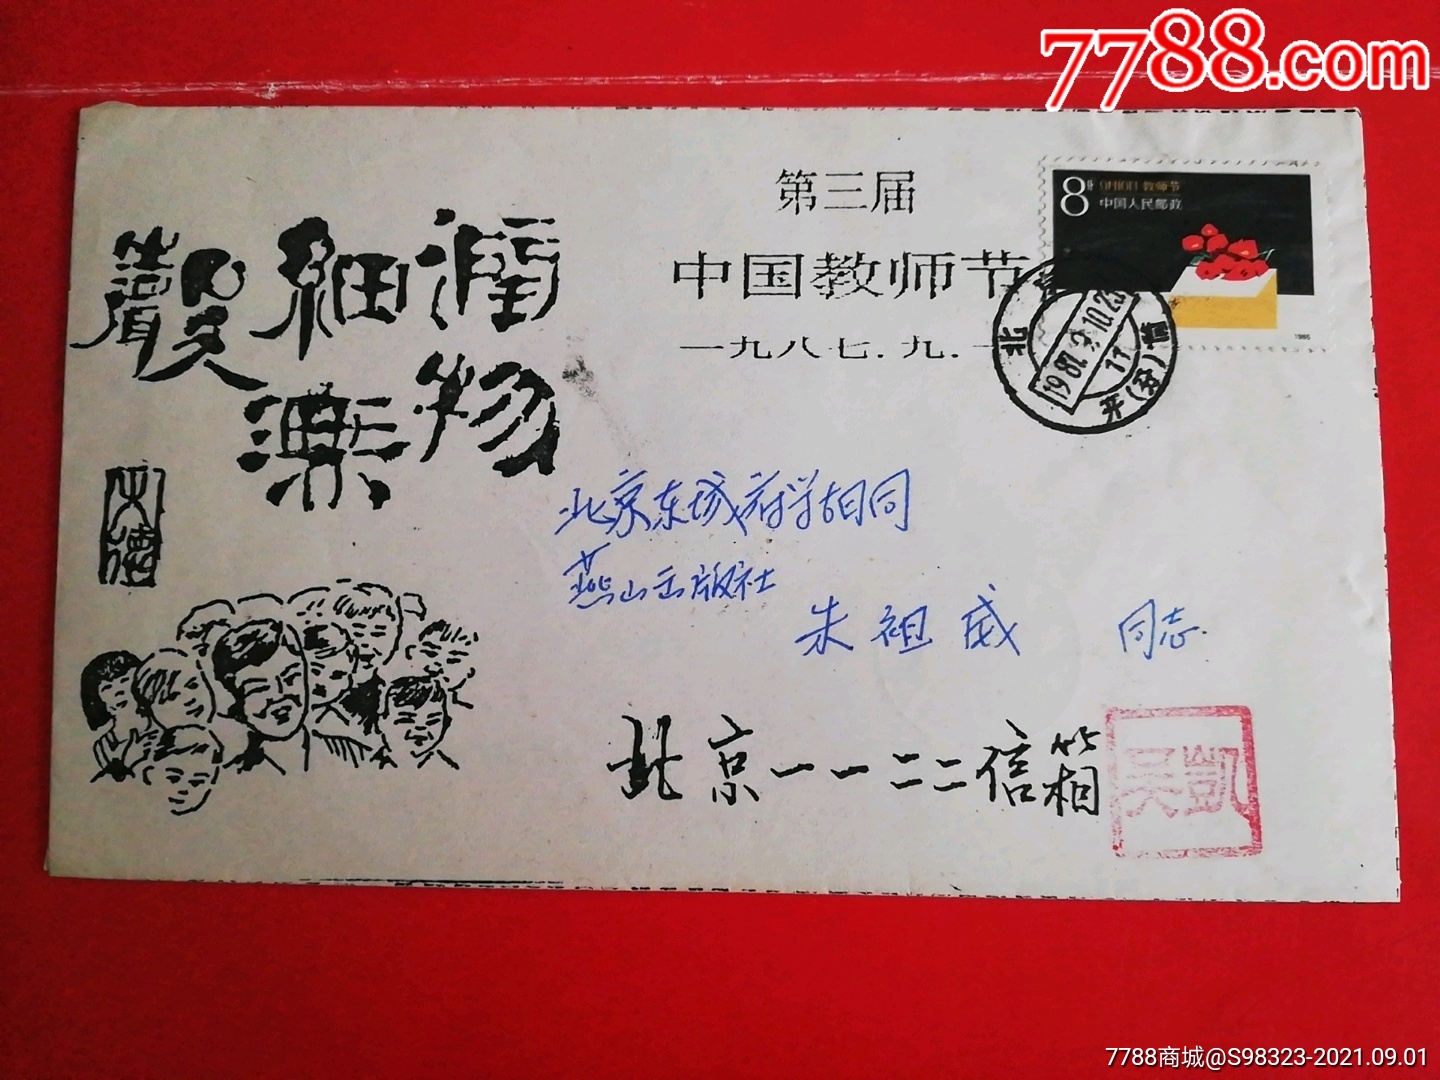 7788.com
第三届
中国教师节
一九八七.九.一
8分
9月10日 教师节
中国人民邮政
1986
北
1987.9.10.23
17
润物
细
無
聲
北京东城府学胡同
燕山出版社
朱祖威 同志
北京一一二二信箱
吴凯
7788商城@S98323-2021.09.01